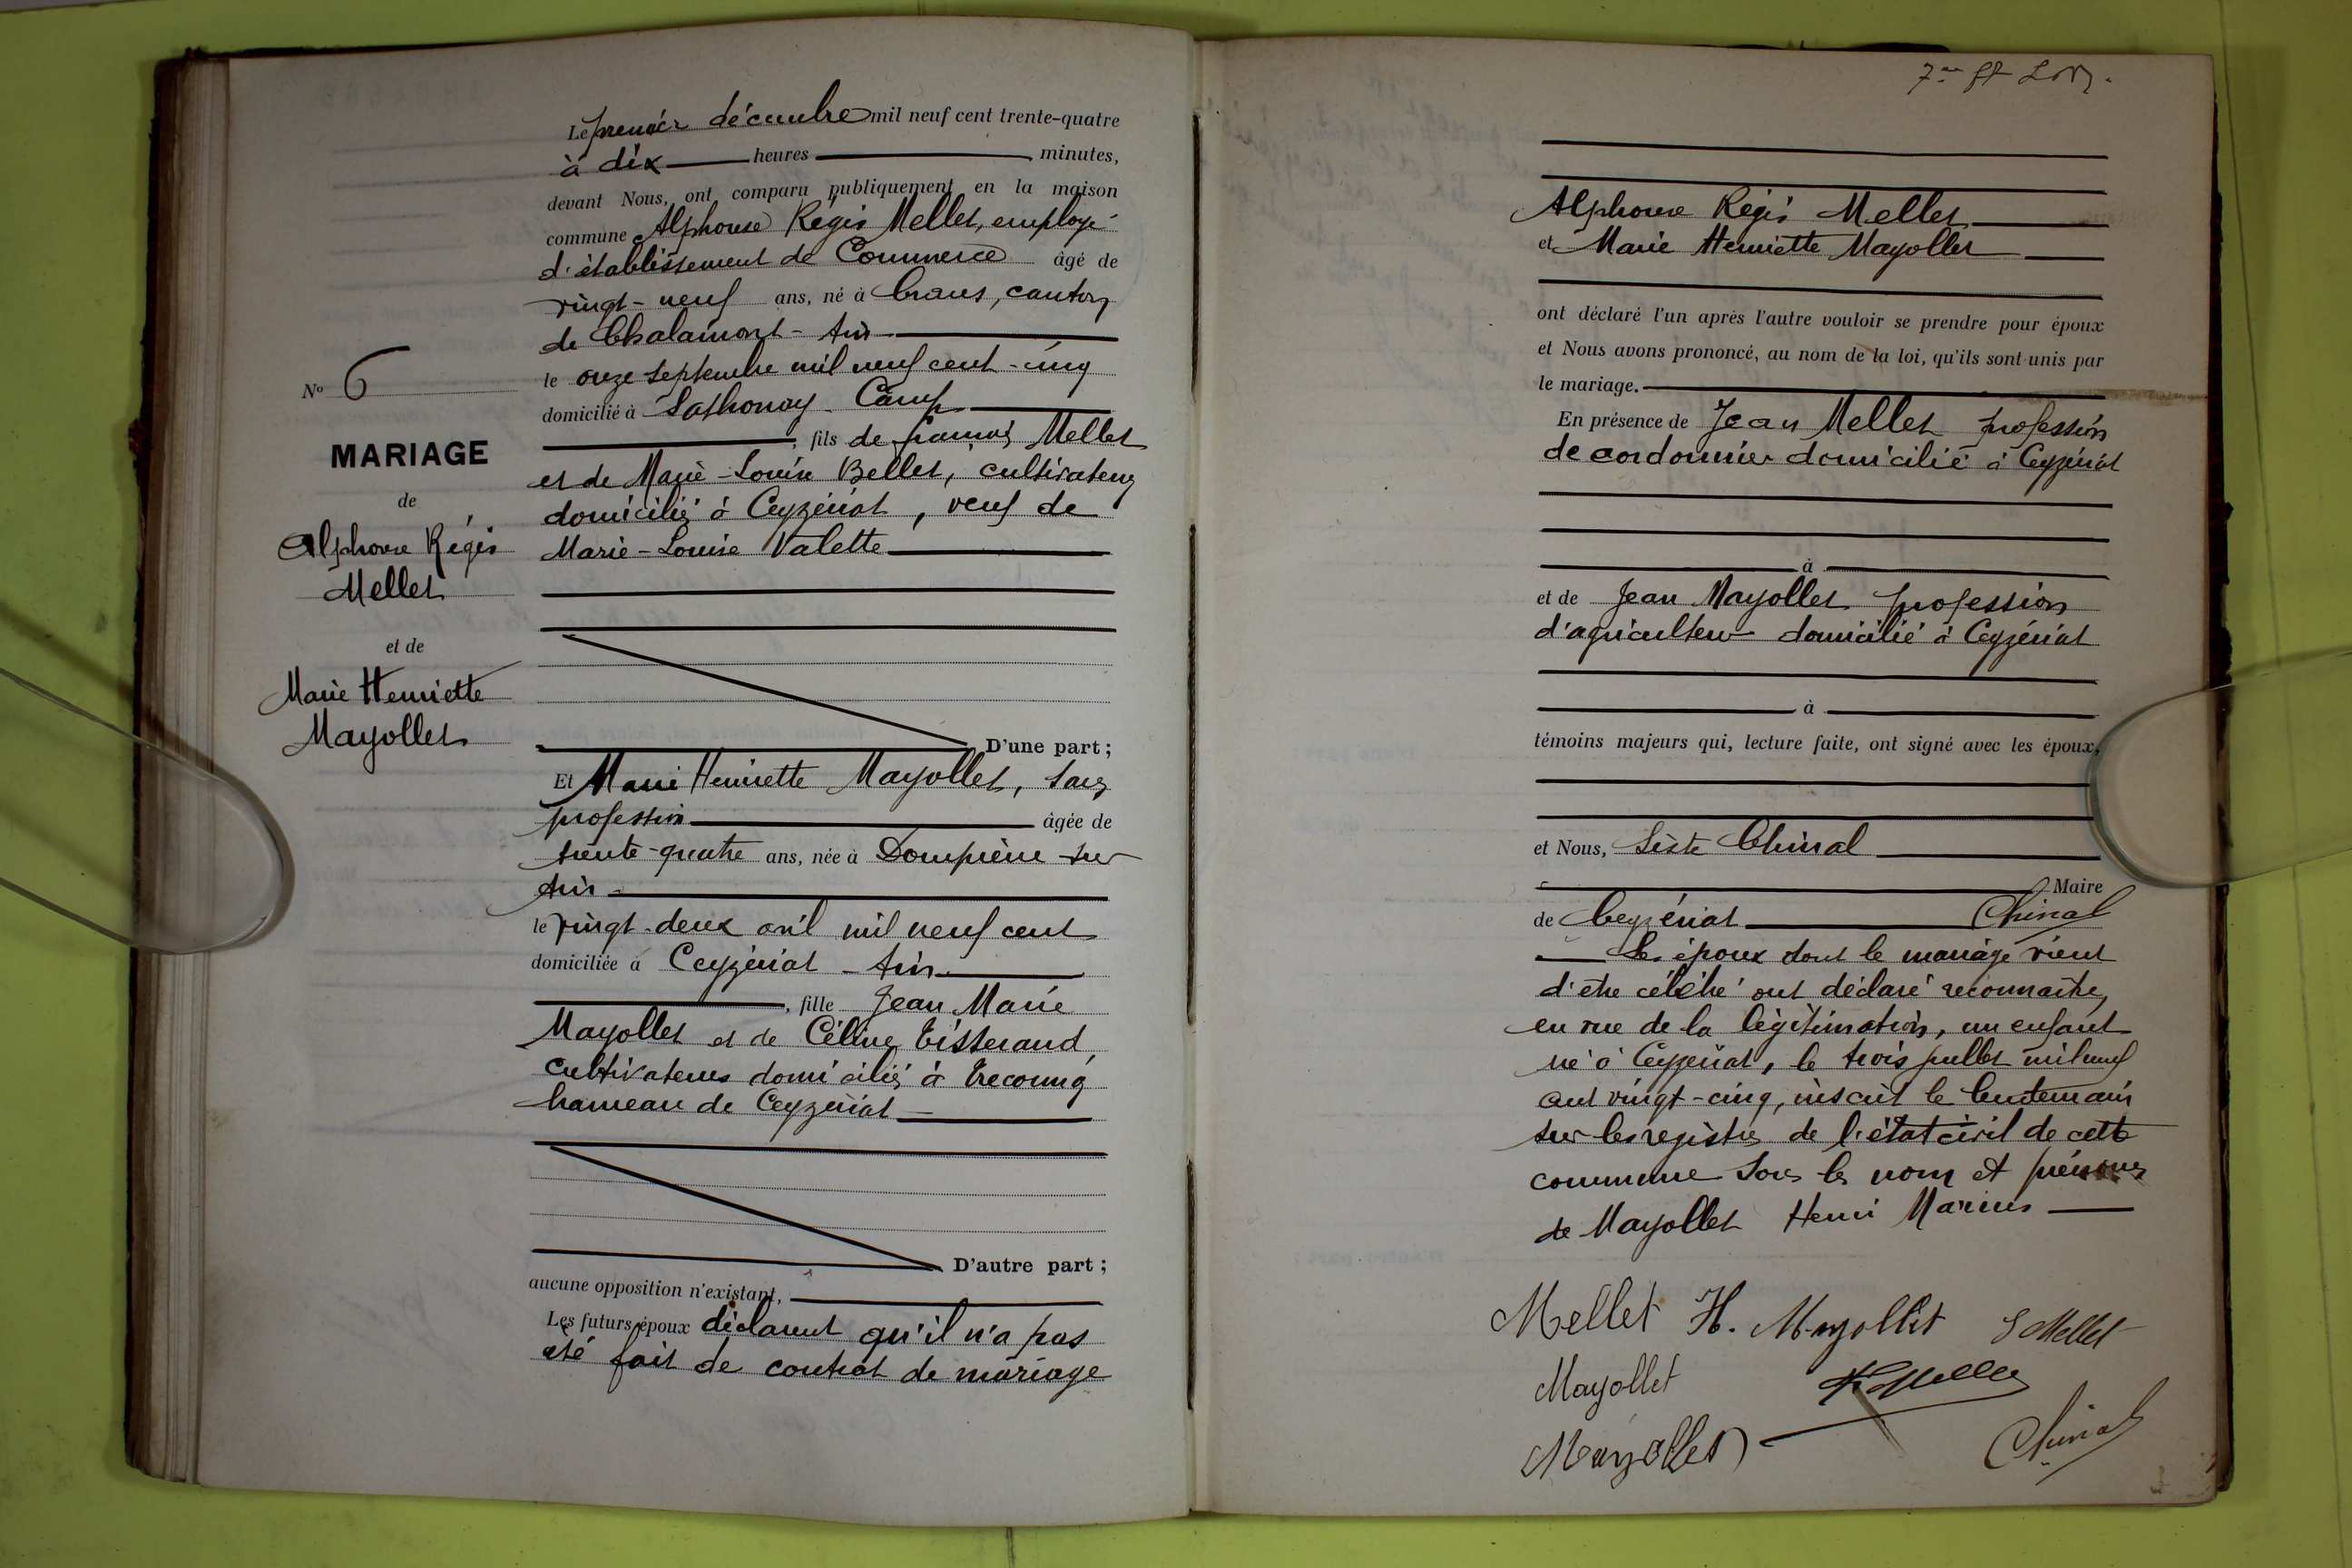 Le premier décembre mil neuf cent trente-quatre
à dix heures minutes,
devant Nous, ont comparu publiquement en la maison
commune Alphonse Régis Mellet, employé
d'établissement de Commerce âgé de
vingt-neuf ans, né à Crans, canton
de Chalamont - Ain
le onze septembre mil neuf cent-cinq
domicilié à Sathonay - Camp
, fils de françois Mellet
et de Marie-Louise Bellet, cultivateurs
domiciliés à Ceyzériat, veuf de
Marie-Louise Valette
D'une part ;
Nº 6
MARIAGE
de
Alphonse Régis
Mellet
et de
Marie Henriette
Mayollet
Et Marie Henriette Mayollet, sans
profession âgée de
trente-quatre ans, née à Dompierre-sur
Ain
le vingt-deux avril mil neuf cent
domiciliée à Ceyzériat - Ain
, fille Jean Marie
Mayollet et de Céline Tisserand,
cultivateurs domiciliés à
hameau de Ceyzériat
D'autre part ;
aucune opposition n'existant,
Les futurs époux déclarent qu'il n'a pas
été fait de contrat de mariage
Alphonse Régis Mellet
et Marie Henriette Mayollet
ont déclaré l'un après l'autre vouloir se prendre pour époux
et Nous avons prononcé, au nom de la loi, qu'ils sont unis par
le mariage.
En présence de Jean Mellet profession
de cordonnier domicilié à Ceyzériat
à
et de Jean Mayollet profession
d'agriculteur domicilié à Ceyzériat
à
témoins majeurs qui, lecture faite, ont signé avec les époux,
et Nous, Sixte Chinal
Maire
de Ceyzériat Chinal
Les époux dont le mariage vient
d'être célébré ont déclaré reconnaître,
en vue de la légitimation, un enfant
né à Ceyzériat, le trois juillet mil neuf
cent vingt-cinq, inscrit le lendemain
sur les registres de l'état civil de cette
commune sous les nom et prénoms
de Mayollet Henri Marius
Mellet H. Mayollet J Mellet
Mayollet
Mayollet Chinal